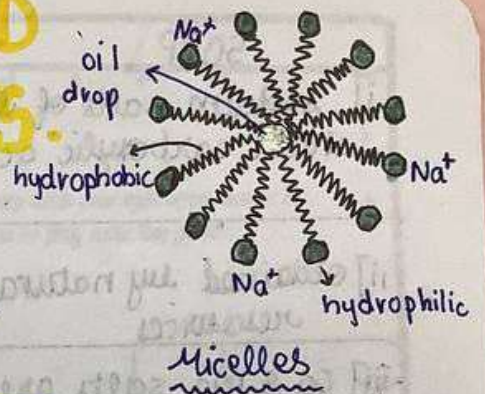 D
Na+
oil
drop
S.
hydrophobic
Na+
Na+
hydrophilic
Micelles